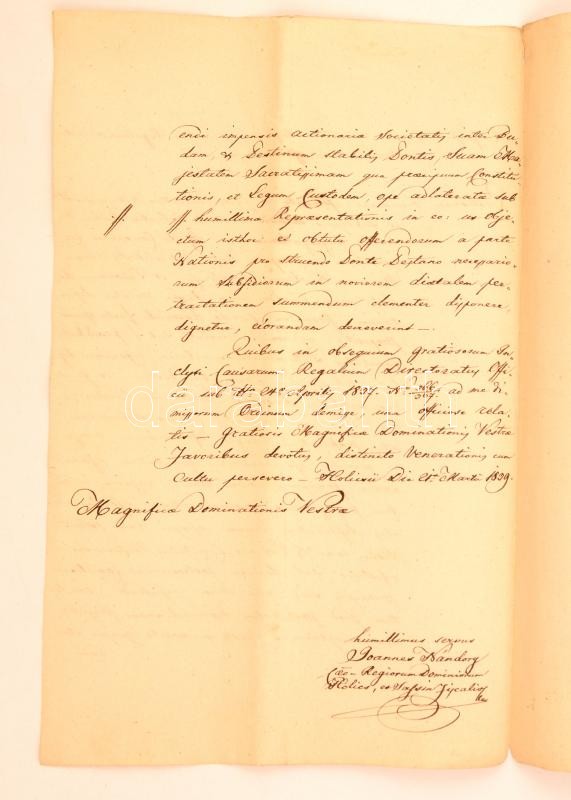 endi impensis actionaria Societatis inter Bu-
dam, & Pestinum stabilis Pontis, Suam Ma-
jestatem Sacratissimam qua praecipuum Constitu-
tionis, et Legum Custodem, ope adlaterata sub
humillima Repraesentationis in eo: ut obje-
ctum isthoc et obtutu offerendorum a parte
Nationis pro struendo Ponte Pestano necessario-
rum subsidiorum in noviorem diaetalem per-
tractationem summendum clementer disponere
dignetur, exorandam decreverint —.
Quibus in obsequium gratiosorum In-
clyti Causarum Regalium Directoratus Offi-
cii sub 24a Aprilis 1837. ad me di-
missorum Ordinum demisse una officiose rela-
tis — Gratiosis Magnificae Dominationis Vestrae
Favoribus devotus, distincto Venerationis cum
Cultu persevero — Holicsii Die 21a Martii 1839.
Magnificae Dominationis Vestrae
humillimus servus
Joannes
Caes. Regiorum Dominiorum
Holics, et Sassin Fiscalis
darabanth